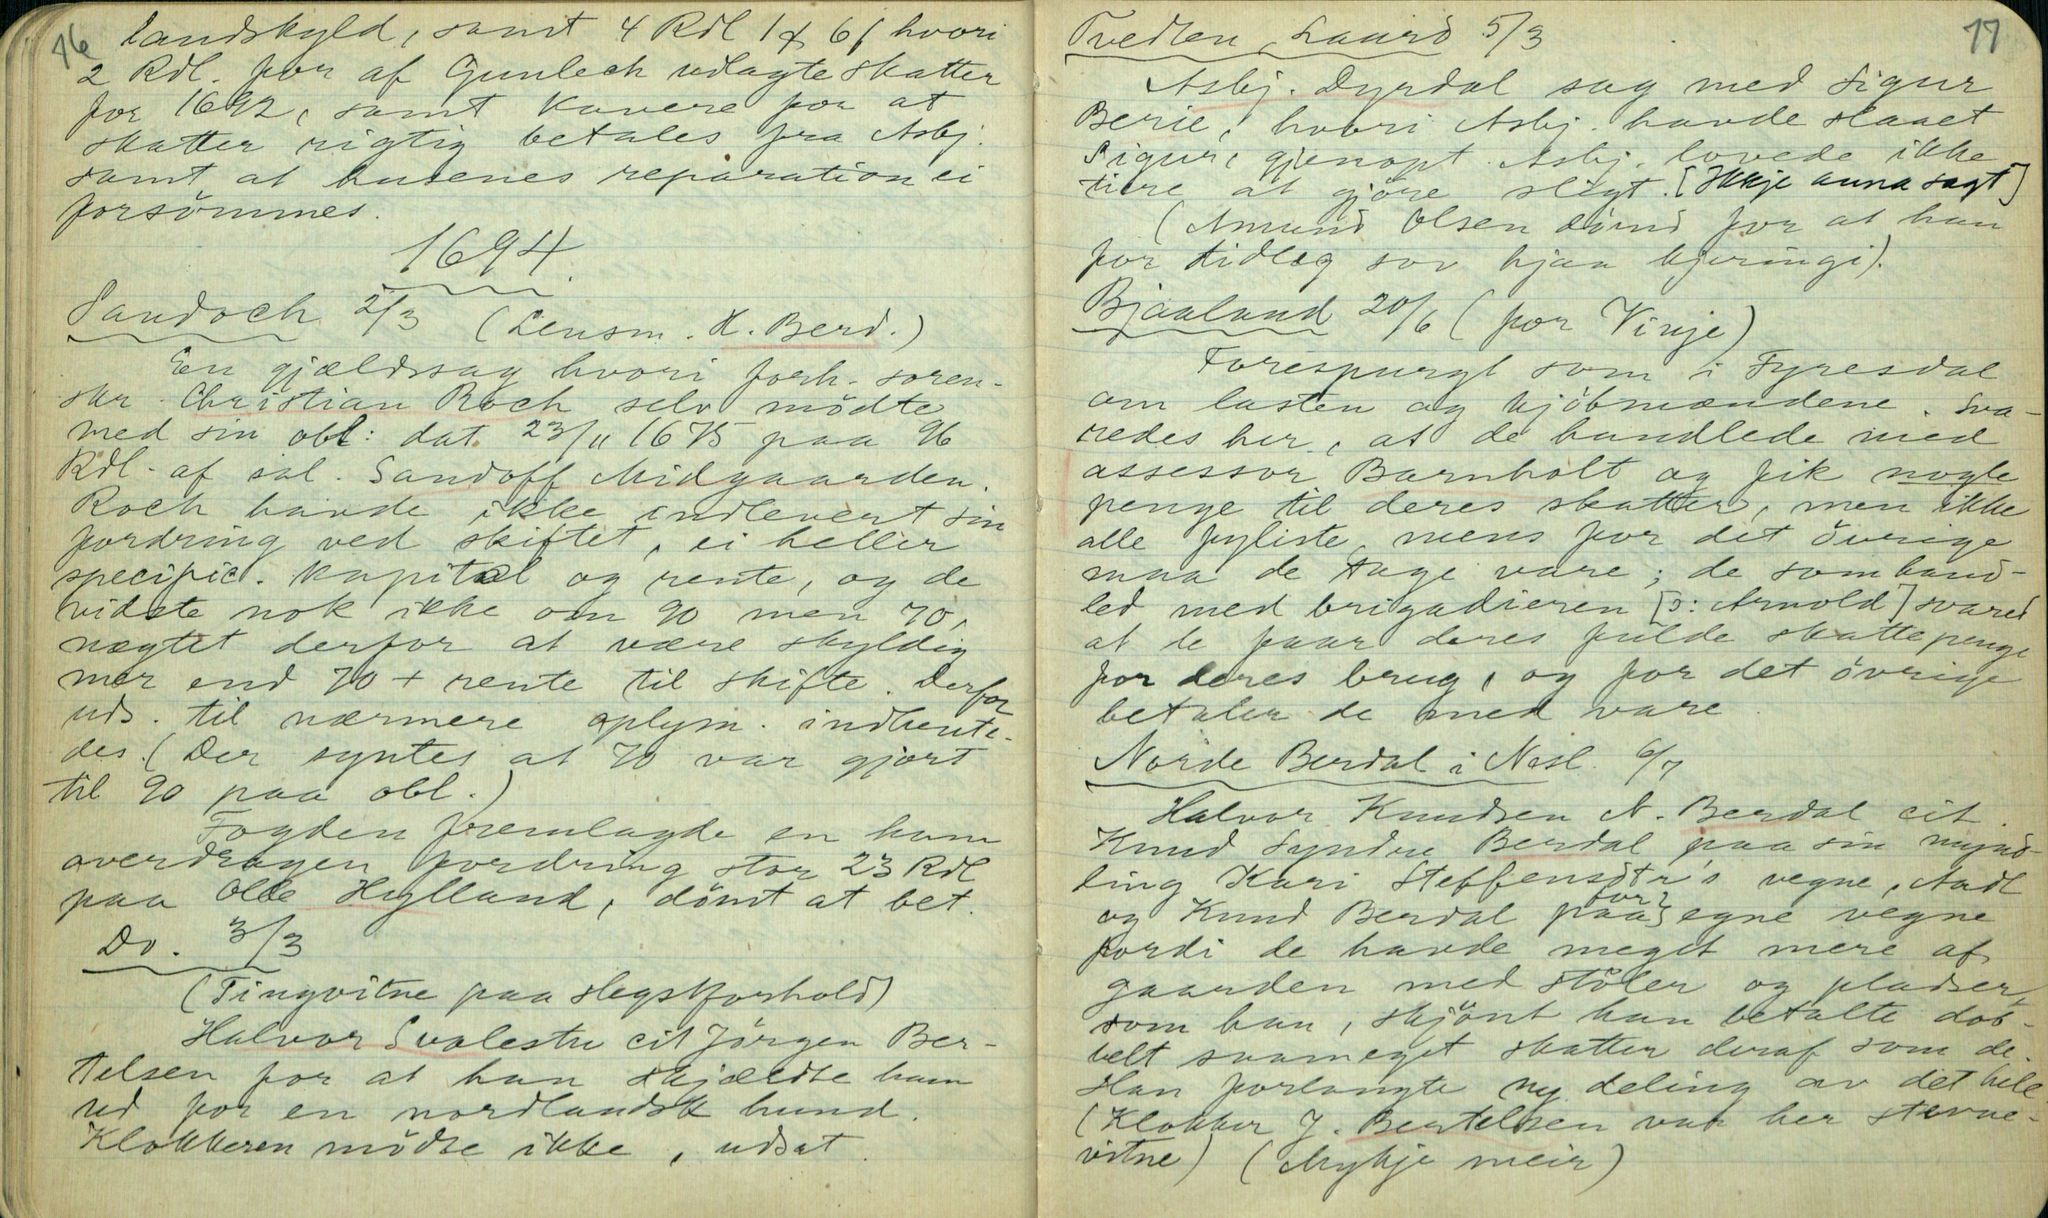 76
landskyld, samt 4 Rdl 1 ort 6 s hvori
2 Rdl. for af Gunlech udlagte skatter
for 1692, samt kavere for at
skatter rigtig betales fra Asbj.
samt at husenes reparation ei
forsömmes.
1694.
Sandoch 2/3 (Lensm. H. Berd.)
En gjældssag hvori forh. soren-
skr. Christian Roch selv mödte
med sin obl: dat. 23/11 1675 paa 96
Rdl. af sal. Sandoff Midgaarden.
Roch havde ikke indlevert sin
fordring ved skiftet, ei heller
specific. kapital og rente, og de
vidste nok ikke om 90 men 70,
nægtet derfor at være skyldig
mer end 70 + rente til skifte. Derfor
uds. til nærmere oplysn. indhente-
des. (Der syntes at 70 var gjort
til 90 paa obl.)
Fogden fremlagde en ham
overdragen fordring stor 23 Rdl
paa Olle Hylland, dömt at bet.
Do. 3/3
(Tingvitne paa slegtforhold)
Halvor Svalestu cit Jörgen Ber-
telsen for at han skjældte ham
ud for en nordlandsk hund.
Klokkeren mödte ikke, udsat.
77
Tvedten, Laurd 5/3
Asbj. Dyrdal sag med Sigur
Berie, hvori Asbj. havde slaaet
Sigur, gjenopt. Asbj. lovede ikke
tiere at gjöre sligt. [Ikkje anna sagt]
(Amund Olsen dömd for at han
for tidleg sov hjaa kjeringi).
Bjaaland 20/6 (for Vinje)
Forespurgt som i Fyresdal
om lasten og kjöbmændene. Sva-
redes her, at de handlede med
assessor Barnholt og fik nogle
penge til deres skatter, men ikke
alle fyliste, mens for det övrige
maa de tage vare; de som hand-
led med brigadieren [ɔ: Arnold] svared
at de faar deres fulde skattepenge
for deres brug, og for det övrige
betaler de med vare.
Nörde Berdal i Nesl. 6/7
Halvor Knudsen N. Berdal cit.
Knud Syndre Berdal paa sin mynd-
ling Kari Steffensdtr's vegne, Aadl
og Knud Berdal paa (for?) egne vegne
fordi de havde meget mere af
gaarden med stöler og pladser,
som han, skjönt han betalte dob-
belt saameget skatter deraf som de.
Han forlangte ny deling av det hele
(Klokker J. Bertelsen var her stevne-
vitne) (Mykje meir)